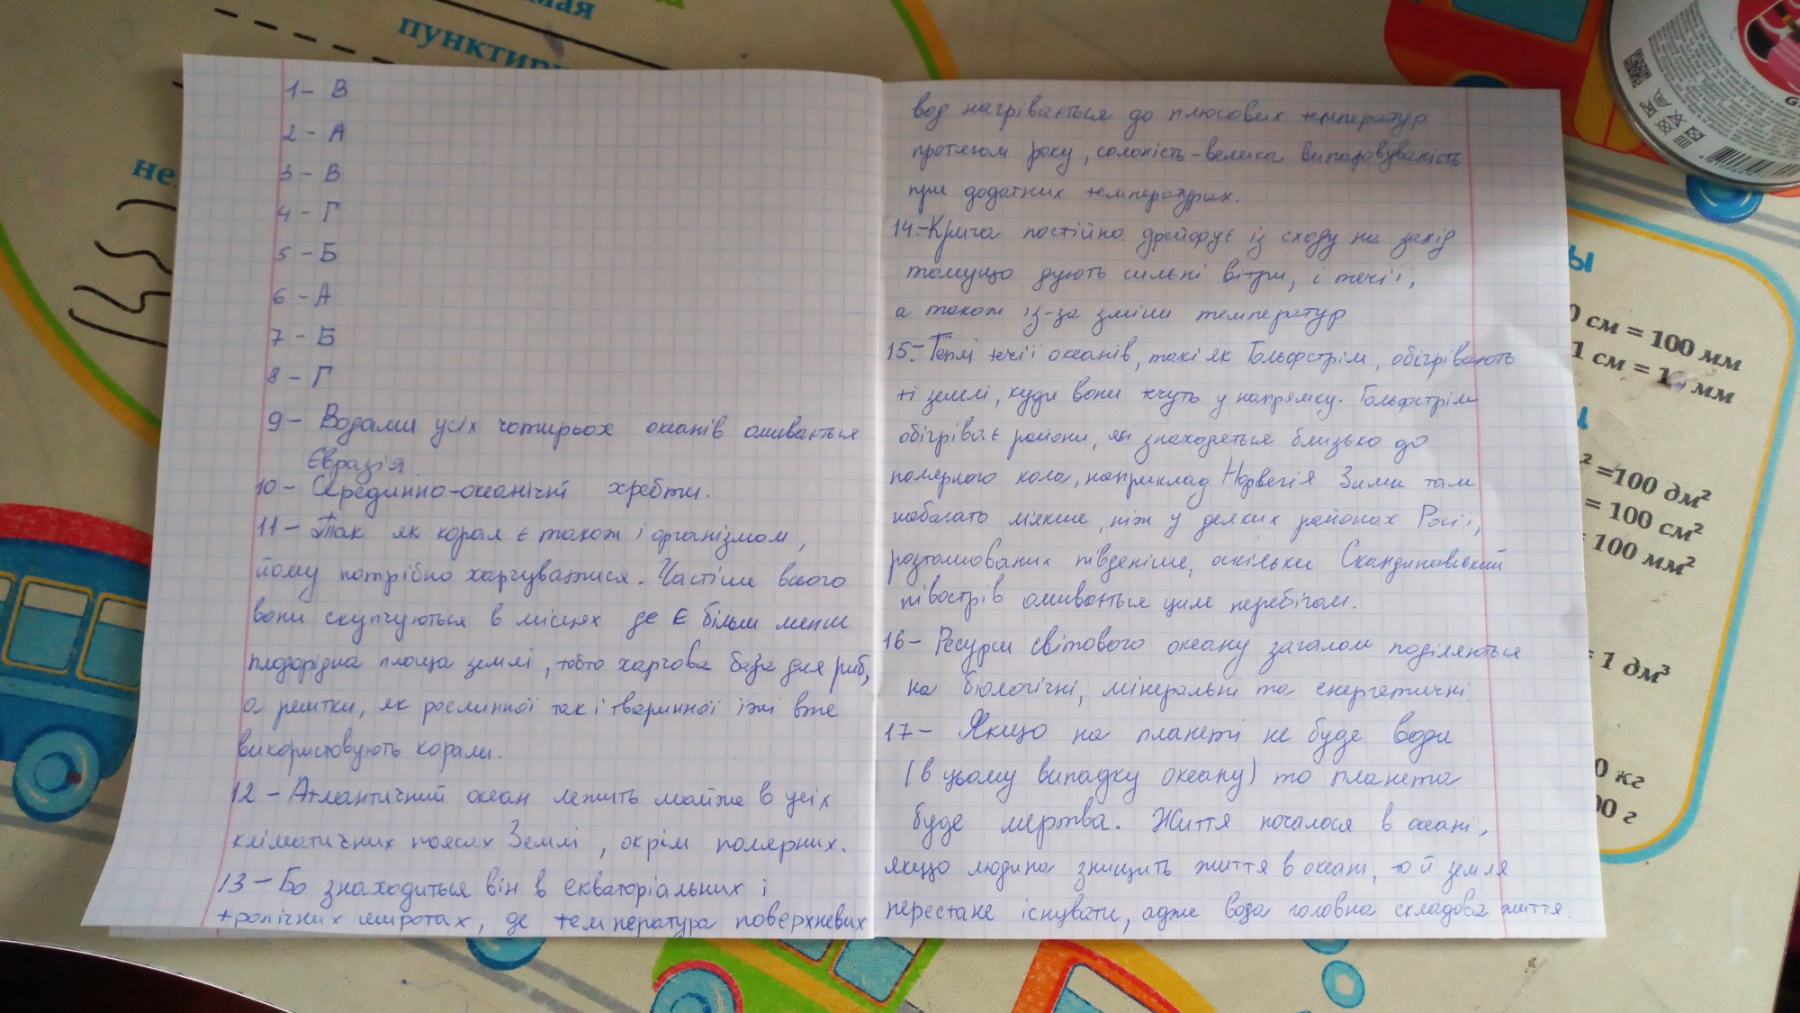 мая
пунктирн
не
1 - В
2 - А
3 - В
4 - Г
5 - Б
6 - А
7 - Б
8 - Г
9 - Водами усіх чотирьох океанів омивається
Євразія
10 - Серединно-океанічні хребти.
11 - Так як корал є також і організмом,
йому потрібно харчуватися. Частіше всього
вони скупчуються в місцях де є більш менш
плодорідна площа землі, тобто харчова база для риб,
а рештки, як рослинної так і тваринної їжі вже
використовують корали.
12 - Атлантичний океан лежить майже в усіх
кліматичних поясах Землі, окрім полярних.
13 - Бо знаходиться він в екваторіальних і
тропічних широтах, де температура поверхневих
вод нагрівається до плюсових температур
протягом року, солоність - велика випаровуваність
при додатних температурах.
14. - Крига постійно дрейфує із сходу на захід
томущо дують сильні вітри, і течії,
а також із-за зміни температур
15. - Теплі течії океанів, такі як Гольфстрім, обігрівають
ті землі, куди вони течуть у напрямку. Гольфстрім
обігріває райони, які знаходяться близько до
полярного кола, наприклад Норвегія Зими там
набагато м'якше, ніж у деяких районах Росії,
розташованих південніше, оскільки Скандинавський
півострів омивається цим перебігом.
16 - Ресурси світового океану загалом поділяються
на біологічні, мінеральні та енергетичні.
17 - Якщо на планеті не буде води
(в цьому випадку океану) то планета
буде мертва. Життя почалося в океані,
якщо людина знищить життя в океані, то й земля
перестане існувати, адже вода головна складова життя.
ы
0 см = 100 мм
1 см = 1 мм
² = 100 дм²
= 100 см²
= 100 мм²
= 1 дм³
0 кг
00 г